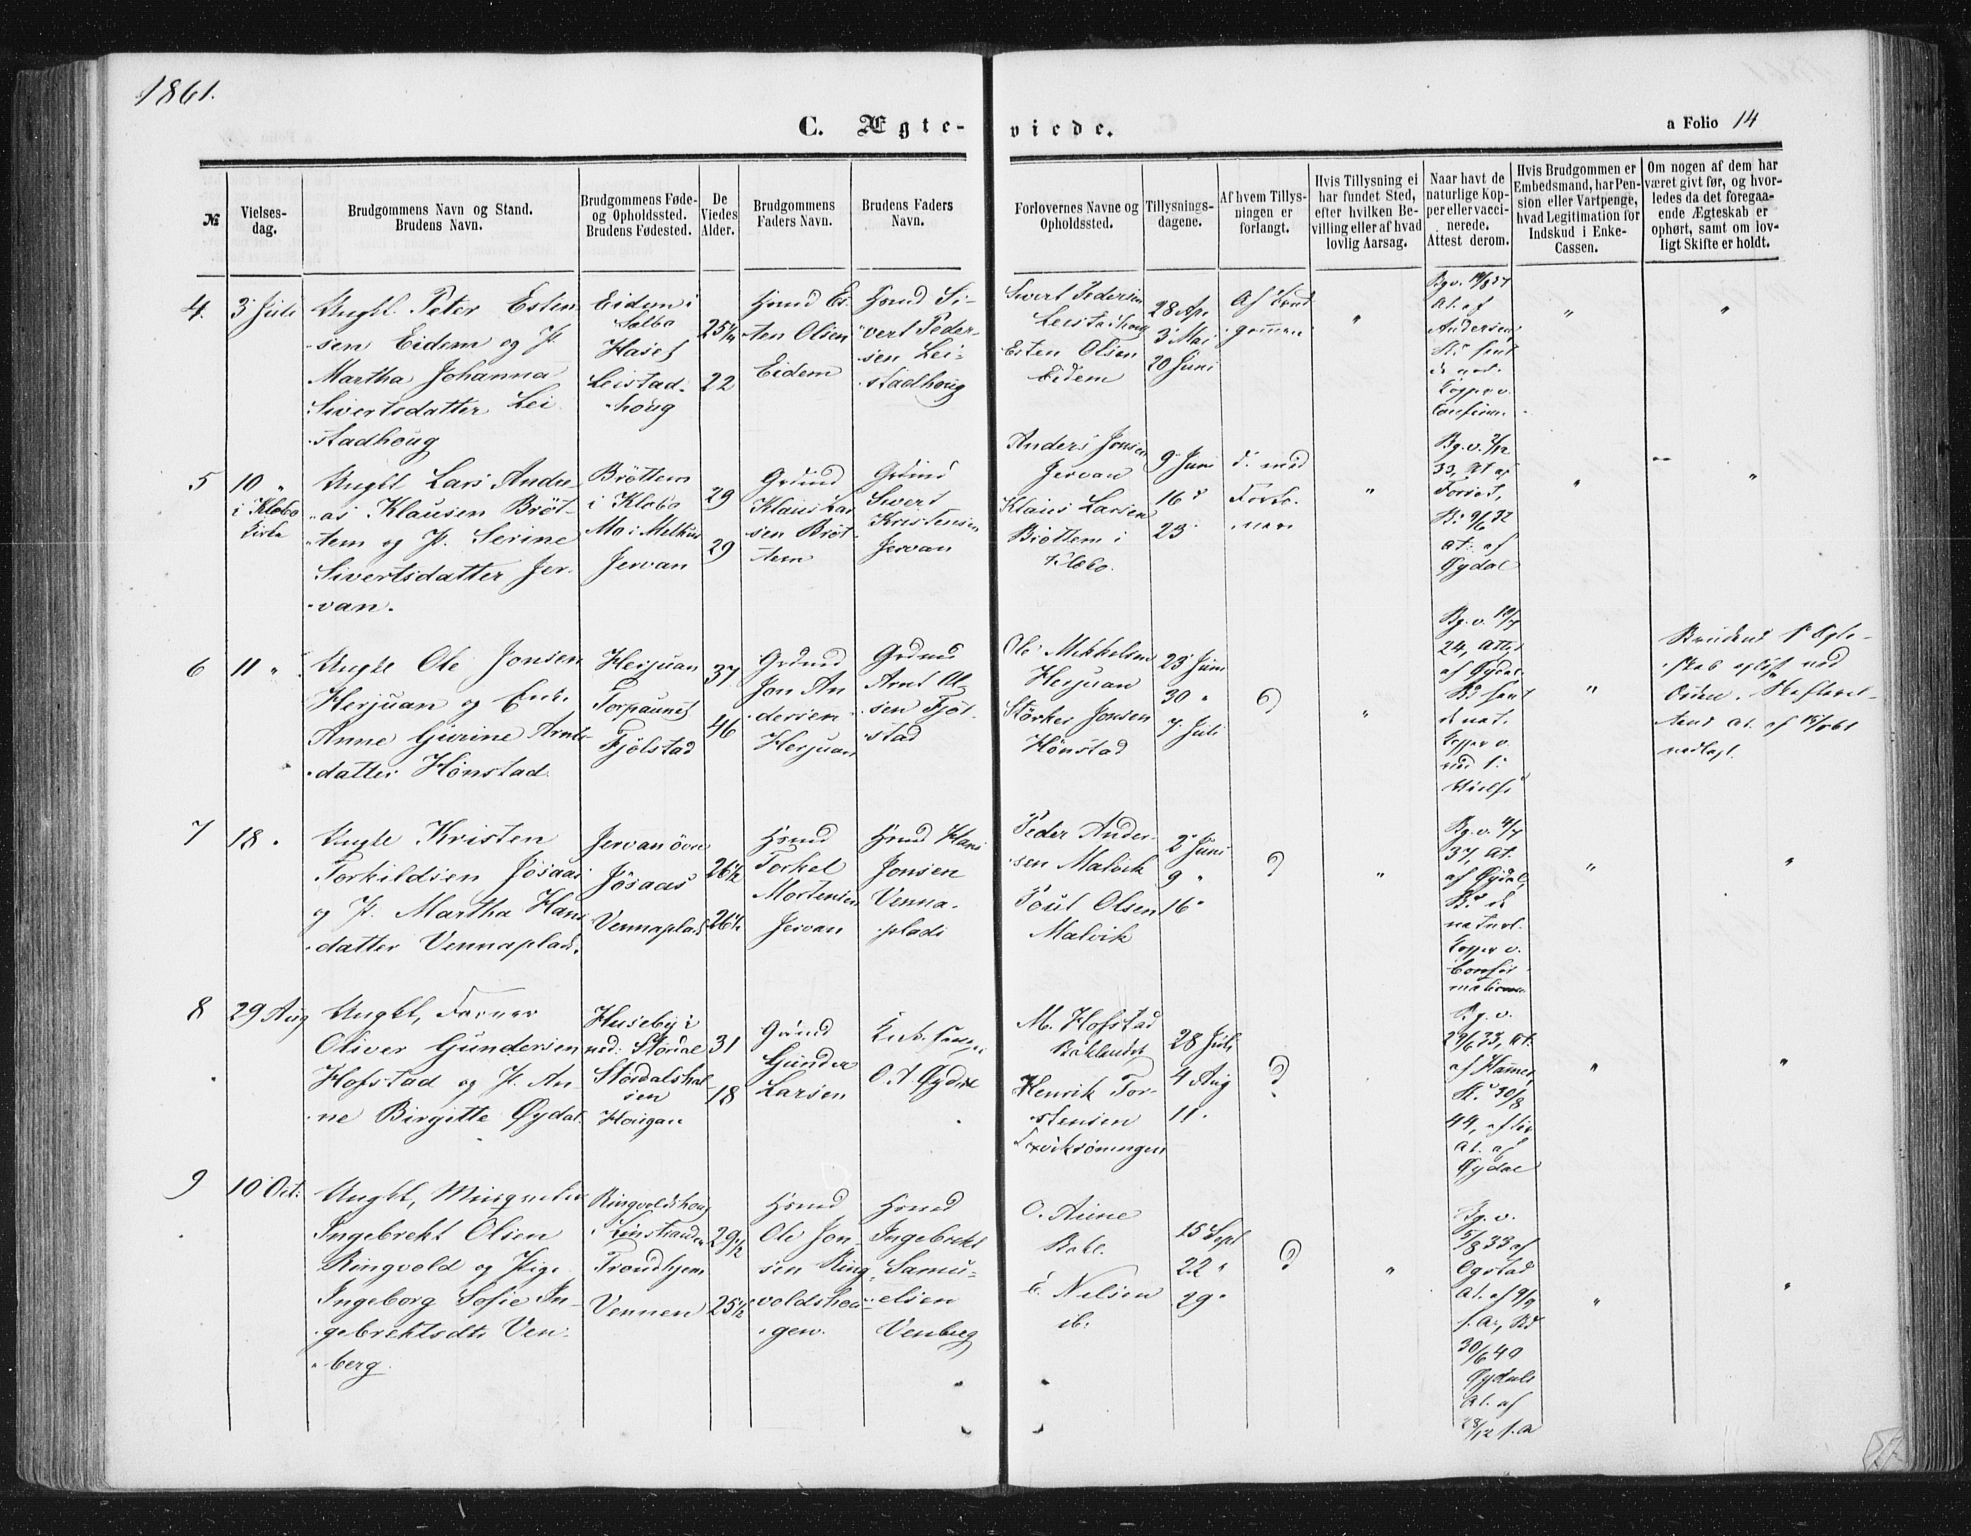 1861.
C. Ægteviede.
a Folio 14
№
Vielsesdag.
Brudgommens Navn og Stand.
Brudens Navn.
Brudgommens Føde-
og Opholdssted.
Brudens Fødested.
De
Viedes
Alder.
Brudgommens
Faders Navn.
Brudens Faders
Navn.
Forlovernes Navne og
Opholdssted.
Tillysnings-
dagene.
Af hvem Tillys-
ningen er
forlangt.
Hvis Tillysning ei
har fundet Sted,
efter hvilken Be-
villing eller af hvad
lovlig Aarsag.
Naar havt de
naturlige Kop-
per eller vacci-
nerede.
Attest derom.
Hvis Brudgommen er
Embedsmand, har Pen-
sion eller Vartpenge,
hvad Legitimation for
Indskud i Enke-
Cassen.
Om nogen af dem har
været givt før, og hvor-
ledes da det foregaa-
ende Ægteskab er
ophørt, samt om lov-
ligt Skifte er holdt.
4.
3 Juli
Ungkl. Peter Esten
sen Eidem og P.
Martha Johanna
Sivertsdatter Lei
stadhoug
Eidem i
Selbo
Leistad
houg
25½
22
Hsmd Es
ten Olsen
Eidem
Hsmd Si-
vert Peder-
sen Lei-
stadhoug
Sivert Pedersen
Leistadhoug
Esten Olsen
Eidem
28 Apr
3 Mai
20 Juni
Af Brud
gommen
"
At. af
Andersen
"
"
5
10 "
i Klæbo
Kirke
Ungkl Lars Andre
as Klausen Bröt-
tem og P. Serine
Sivertsdatter Jer
van.
Bröttem
i Klæbo
Mo i Melhus
Jervan
29
29
Grdmd
Klaus Lar
sen Bröt
tem
Grdmd
Sivert
Kristensen
Jervan
Anders Jonsen
Jervan
Klaus Larsen
Bröttem i
Klæbo.
9 Juni
16 "
23
d. med
Forlo
"
33, At af
At. af
Øydal
"
"
6
11 "
Ungkl Ole Jonsen
Herjuan og Enke
Anne Gurine Arnts
datter Hönstad
Herjuan
Torpaunet
Fjölstad
37
46
Grdmd
Jon An
dersen
Herjuan
Grdmd
Arnt Ol
sen Fjöl
stad
Ole Mikkelsen
Herjuan
Störker Jonsen
Hönstad
23 Juni
30 "
7 Juli
d
"
24, Att.
af Øydal
"
Brudens 1' Ægte-
skab oplöst ved
Döden. Skifterets
nedlagt.
7
18 "
Ungkl Kristen
Torkildsen Jösaas
og P. Martha Hans
datter Vennaplads.
Jervan övre
Jösaas
Vennaplads
26½
26¼
Hsmd
Torkel
Mortensen
Jervan
Hsmd Hans
Jonsen
Venna-
plads
Peder Ander-
sen Malvik
Poul Olsen
Malvik
2 Juni
9 "
16 "
d
"
Bg. v. 4/7
37, At.
af Øydal,
Bd de
naturl.
Kopper v.
Confir
mationen
"
"
8
29 Aug
Ungkl, Farver
Oliver Gundersen
Hofstad og P. An
ne Birgitte Øydal
Huseby i
ned. Stördal
Stördalshal
sen
Hougan
31
18
Grdmd
Gunder
Larsen
O. A. Øydal
M. Hofstad
Baklandet
Henrik Tor-
stensen
28 Juli
4 Aug
11 "
d
Bg. v.
29/6 33, At.
af Hammer,
Bd 30/8
44, efter
At. af
Øydal
"
"
9
10 Oct.
Ungkl,
Ingebrekt Olsen
Ringvold og Pige
Ingeborg Sofie In-
gebrektsdtr Ven-
berg
Ringvoldshoug
i Kinstranden
Trondhjem
Vennen
29½
25½
Hsmd
Ole Jon-
sen Ring
voldshou-
gen.
Hsmd
Ingebrekt
Samu-
elsen
Venberg
O. Aune
Bakl.
E. Nelsen
ib.
15 Sept
22 "
29 "
d
"
Bg. v.
5/8 33 af
Ogstad
At. af 9/9
f. A., Bd
30/6 40
Øydals
At. af
28/12 f. A
"
"